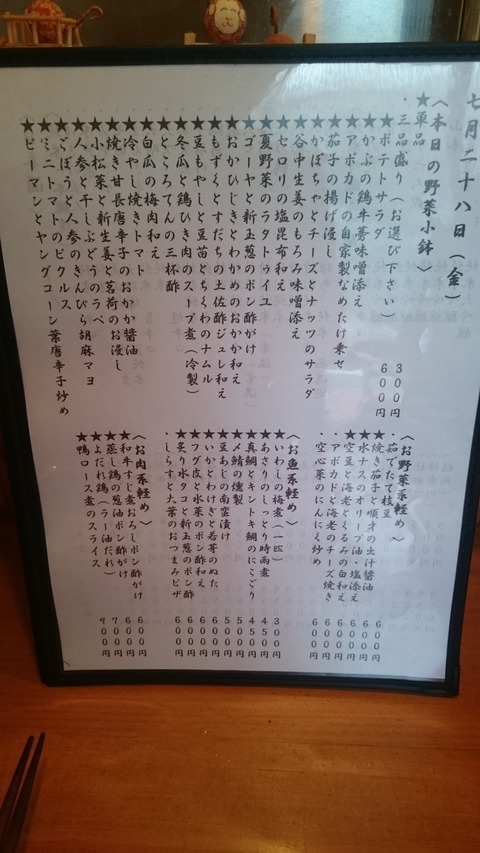 七月二十八日（金）
〈本日の野菜小鉢〉
★単品 300円
・三品盛り（お選び下さい） 600円
★ポテトサラダ
★かぶの鶏牛蒡味噌添え
★アボカドの自家製なめたけ乗せ
★茄子の揚げ浸し
★かぼちゃとチーズとナッツのサラダ
★谷中生姜のもろみ味噌添え
★セロリの塩昆布和え
★夏野菜のラタトゥイユ
★ゴーヤと新玉葱のポン酢がけ
★おかひじきとわかめのおかか和え
★もずくとすだちの土佐酢ジュレ和え
★豆もやしと豆苗とちくわのナムル
★冬瓜と鶏ひき肉のスープ煮（冷製）
★ところてんの三杯酢
★白瓜の梅肉和え
★冷やし焼きトマト
★焼き甘長唐辛子のおかか醤油
★小松菜と新生姜と茗荷のお浸し
★人参と干しぶどうのラペ
★ごぼうと人参のきんぴら 胡麻マヨ
★ミニトマトのピクルス
★ピーマンとヤングコーン葉唐辛子炒め
〈お野菜系軽め〉
・茹でたて枝豆
★焼き茄子と順才の出汁醤油 600円
★水ナスのオリーブ油・塩添え 600円
★空豆と海老とくるみの白和え 600円
・アボカドと海老のチーズ焼き 600円
・空心菜のにんにく炒め 600円
〈お魚系軽め〉
★いわしの梅煮（一匹） 300円
★あさりのしっとり時雨煮 450円
★真鯛とキントキ鯛のにこごり 450円
★〆鯖の燻製 500円
★豆あじの南蛮漬け 500円
★いかとわけぎと若芽のぬた 600円
★フグ皮と水菜のポン酢和え 600円
★炙り水タコと新玉葱のポン酢 600円
・しらすと大葉のおつまみピザ 600円
〈お肉系軽め〉
★和牛すじ煮おろしポン酢がけ 600円
★蒸し鶏の葱油ポン酢がけ 600円
★よだれ鶏（ラー油だれ） 700円
★鴨ロース煮のスライス 900円